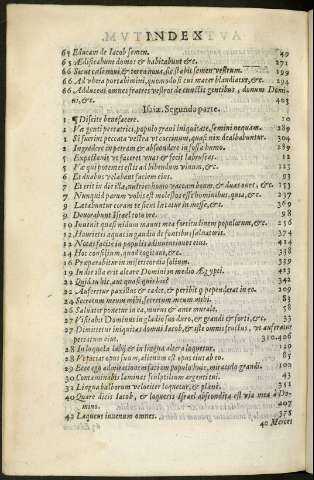 INDEX
65 Educam de Iacob semen. 49
65 Ædificabunt domos & habitabunt &c. 271
66 Sicut cælum noui & terra noua, sic stabit semen vestrum. 199
66 Ad vbera portabimini, quomodo si cui mater blandiatur, &c. 294
66 Adducent omnes fratres vestros de cunctis gentibus, donum Domi-
ni, &c. 403
Isaiæ. Segunda parte.
1 Discite benefacere. 20
1 Væ genti peccatrici, populo graui iniquitate, semini nequam. 289
1 Si fuerint peccata vestra vt coccinum, quasi nix dealbabuntur. 304
2 Ingredere in petram & abscondere in fossa humo. 289
5 Expectauit vt faceret vuas & fecit labruscas. 12
5 Væ qui potentes estis ad bibendum vinum, &c. 125
6 Et duabus velabant faciem eius. 93
7 Et erit in die illa, nutriet homo vaccam boum, & duas oues, &c. 153
7 Nunquid parum vobis est molestos esse hominibus, quia, &c. 237
9 Lætabuntur coram te sicut lætantur in messe, &c. 369
9 Deuorabunt Israel toto ore. 98
10 Inuenit quasi nidum manus mea fortitudinem populorum, &c. 256
12 Haurietis aquas in gaudio de fontibus saluatoris. 374
12 Notas facite in populis adinuentiones eius. 414
14 Hoc consilium, quod cogitaui, &c. 339
16 Præparabitur in misericordia solium 339
19 In die illa erit altare Domini in medio Ægypti. 423
22 Quid tu hic, aut quasi quis hic? 342
22 Auferetur paxillus & cadet, & peribit quod pependerat in eo. 209
24 Secretum meum mihi, secretum meum mihi. 83
26 Saluator ponetur in ea, murus & ante murale. 58
27 Visitabit Dominus in gladio suo duro, & grandi & forti, &c. 33
27 Dimittetur iniquitas domui Iacob, & iste omnis fructus, vt auferatur
peccatum eius. 310,406
28 In loquela labij & in lingua altera loquetur. 110
28 Vt faciat opus suum, alienum est opus eius ab eo. 85
29 Ecce ego admirationem faciam populo huic, miraculo grandi. 100
30 Contaminabis laminas sculptilium argenti tui. 43
32 Lingua balborum velociter loquetur, & plane. 351
40 Quare dicis Iacob, & loqueris Israel abscondita est via mea à Do-
mino. 407
42 Laqueus iuuenum omnes. 375
42 Moreri